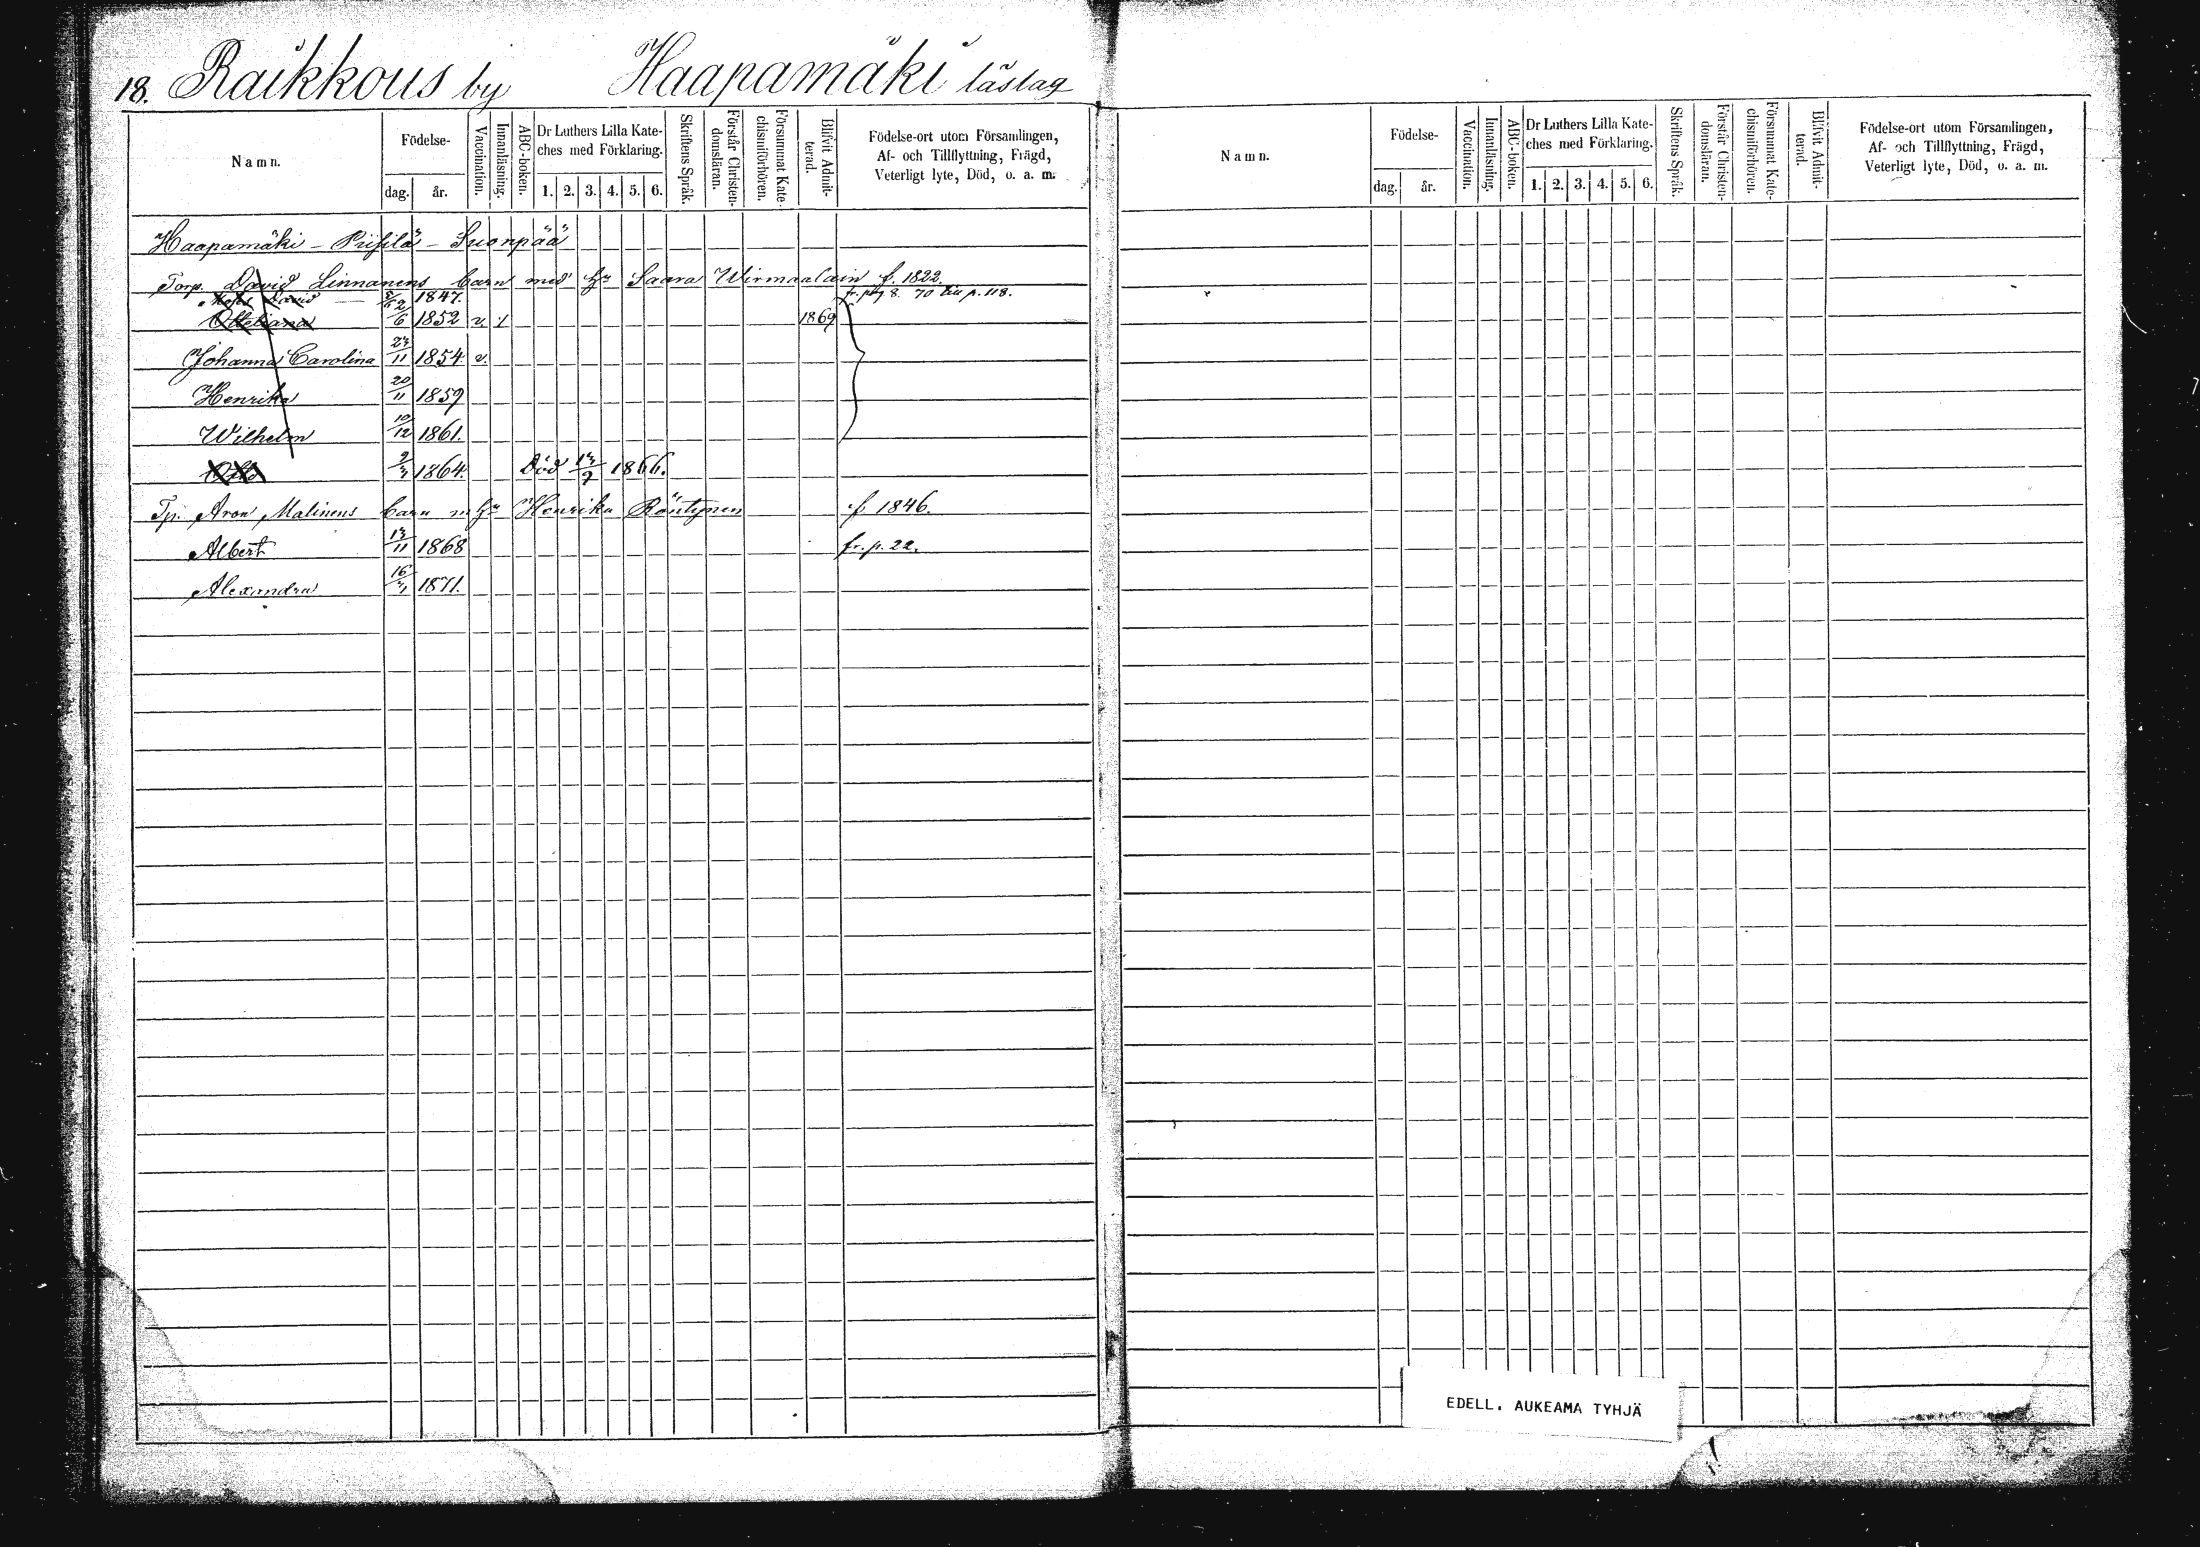 18. Raikkous by Haapamäki läslag
Namn.
Födelse-
dag. år.
Vaccination.
Innanläsning.
ABC-boken.
Dr Luthers Lilla Kate-
ches med Förklaring.
1. 2. 3. 4. 5. 6.
Skriftens Språk.
Förstår Christen-
domsläran.
Försummat Kate-
chismiförhören.
Blifvit Admit-
terad.
Födelse-ort utom Församlingen,
Af- och Tillflyttning, Frägd,
Veterligt lyte, Död, o. a. m.
Haapamäki - Prifilä - Suonpää
Torp. David Linnanens barn med hu Saara Wirmaalain f. 1822.
David 1847. fr. pag 8. 70 till p. 118.
2/6 1852 v. 1869
Johanna Carolina 23/11 1854 v.
Henrika 20/11 1859
Wilhelm 10/12 1861.
Otto 1864. Död 1866.
Tp. Aron Malinens barn m hu Henrika Röntynen f. 1846.
Albert 13/11 1868 fr. p. 22.
Alexandra 1871.
Namn.
Födelse-
dag. år.
Vaccination.
Innanläsning.
ABC-boken.
Dr Luthers Lilla Kate-
ches med Förklaring.
1. 2. 3. 4. 5. 6.
Skriftens Språk.
Förstår Christen-
domsläran.
Försummat Kate-
chismiförhören.
Blifvit Admit-
terad.
Födelse-ort utom Församlingen,
Af- och Tillflyttning, Frägd,
Veterligt lyte, Död, o. a. m.
EDELL. AUKEAMA TYHJÄ